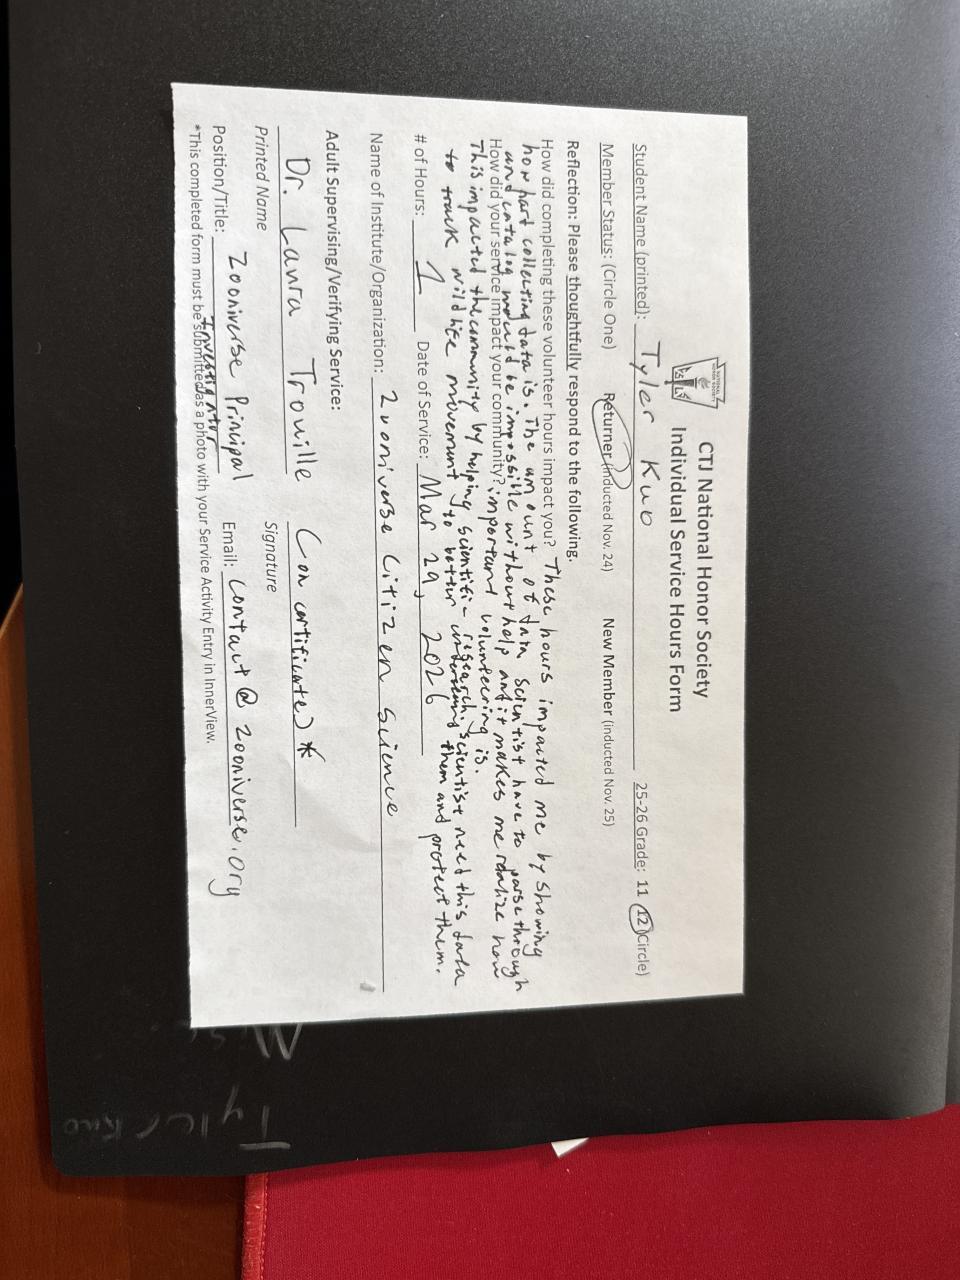 CTJ National Honor Society
Individual Service Hours Form
Student Name (printted): Tyler Kuo 25-26 Grade: 11 12 (Circle)
Member Status: (Circle One) Returner (inducted Nov. 24) New Member (inducted Nov. 25)
Reflection: Please thoughtfully respond to the following.
How did completing these volunteer hours impact you? These hours impacted me by showing
how hard collecting data is. The amount of data scientist have to parse through
and catalog would be impossible without help and it makes me realize how
How did your service impact your community? important volunteering is.
This impacted the community by helping scientific research. scientist need this data
to track wildlife movement to better understand them and protect them.
# of Hours: 1 Date of Service: Mar 29, 2026
Name of Institute/Organization: Zooniverse Citizen Science
Adult Supervising/Verifying Service:
Dr. Laura Trouille (on certificate) *
Printed Name Signature
Position/Title: Zooniverse Principal Email: contact@zooniverse.org
Investigator
*This completed form must be submitted as a photo with your Service Activity Entry in InnerView.
Tyler Kuo